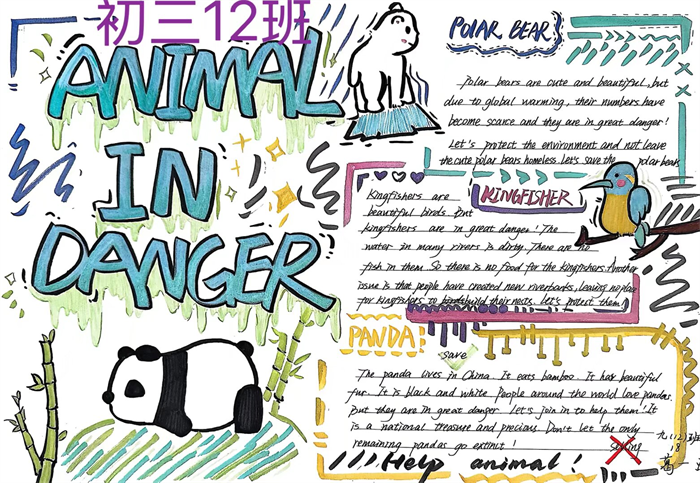 初三12班
ANIMAL
IN
DANGER
POLAR BEAR
Polar bears are cute and beautiful, but
due to global warming, their numbers have
become scarce and they are in great danger!
Let's protect the environment and not leave
the cute polar bears homeless. Let's save the polar bears
KINGFISHER
Kingfishers are
beautiful birds. But
kingfishers are in great danger! The
water in many rivers is dirty. There are no
fish in them. So there is no food for the kingfishers. Another
issue is that people have created new riverbanks, leaving no place
for kingfishers to build their nests. Let's protect them!
PANDA
save
The panda lives in China. It eats bamboo. It has beautiful
fur. It is black and white. People around the world love pandas.
But they are in great danger. Let's join in to help them! It
is a national treasure and precious. Don't let the only
remaining pandas go extinct!
Help animal!
九(12)班
18